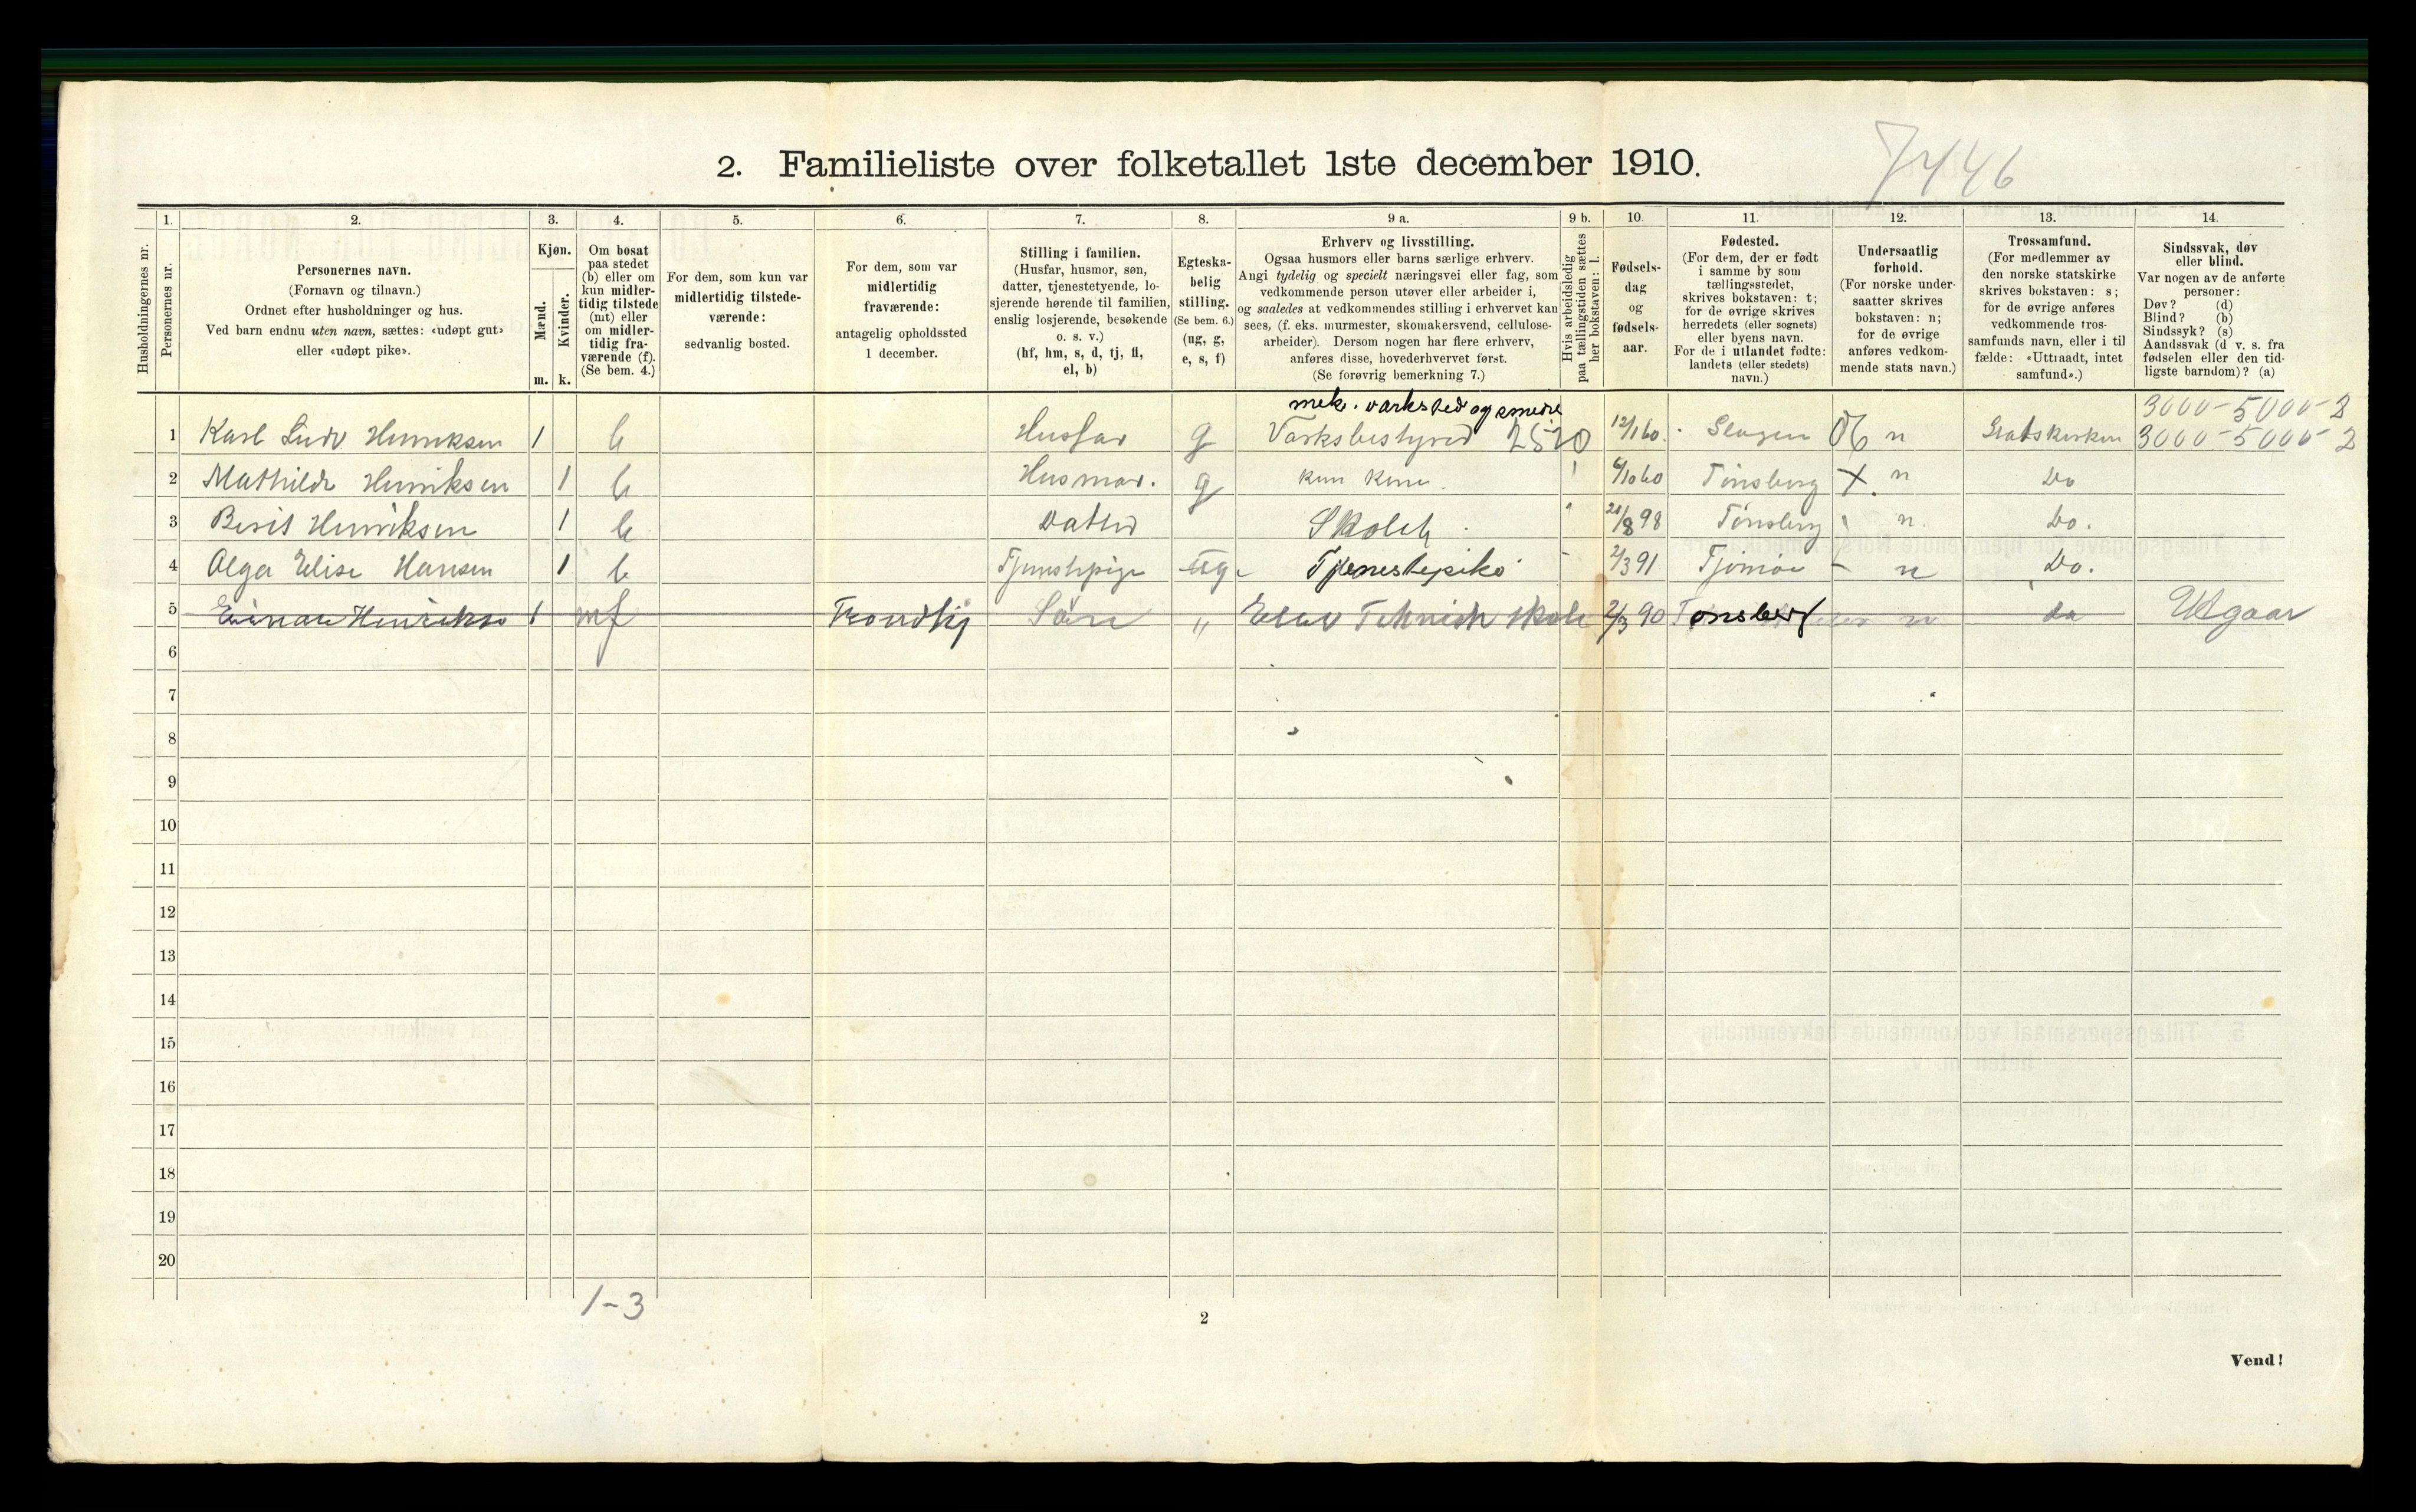 7446
2. Familieliste over folketallet 1ste december 1910.
Husholdningernes nr.
1.
Personernes nr.
2.
Personernes navn.
(Fornavn og tilnavn.)
Ordnet efter husholdninger og hus.
Ved barn endnu uten navn, sættes: «udøpt gut»
eller «udøpt pike».
3.
Kjøn.
Mænd.
Kvinder.
m. k.
4.
Om bosat
paa stedet
(b) eller om
kun midler-
tidig tilstede
(mt) eller
om midler-
tidig fra-
værende (f).
(Se bem. 4.)
5.
For dem, som kun var
midlertidig tilstede-
værende:
sedvanlig bosted.
6.
For dem, som var
midlertidig
fraværende:
antagelig opholdssted
1 december.
7.
Stilling i familien.
(Husfar, husmor, søn,
datter, tjenestetyende, lo-
sjerende hørende til familien,
enslig losjerende, besøkende
o. s. v.)
(hf, hm, s, d, tj, fl,
el, b)
8.
Egteska-
belig
stilling.
(Se bem. 6.)
(ug, g,
e, s, f)
9 a.
Erhverv og livsstilling.
Ogsaa husmors eller barns særlige erhverv.
Angi tydelig og specielt næringsvei eller fag, som
vedkommende person utøver eller arbeider i,
og saaledes at vedkommendes stilling i erhvervet kan
sees, (f. eks. murmester, skomakersvend, cellulose-
arbeider). Dersom nogen har flere erhverv,
anføres disse, hovederhvervet først.
(Se forøvrig bemerkning 7.)
9 b.
Hvis arbeidsledig
paa tællingstiden sættes
her bokstaven: l.
10.
Fødsels-
dag
og
fødsels-
aar.
11.
Fødested.
(For dem, der er født
i samme by som
tællingsstedet,
skrives bokstaven: t;
for de øvrige skrives
herredets (eller sognets)
eller byens navn.
For de i utlandet fødte:
landets (eller stedets)
navn.)
12.
Undersaatlig
forhold.
(For norske under-
saatter skrives
bokstaven: n;
for de øvrige
anføres vedkom-
mende stats navn.)
13.
Trossamfund.
(For medlemmer av
den norske statskirke
skrives bokstaven: s;
for de øvrige anføres
vedkommende tros-
samfunds navn, eller i til
fælde: «Uttraadt, intet
samfund».)
14.
Sindssvak, døv
eller blind.
Var nogen av de anførte
personer:
Døv? (d)
Blind? (b)
Sindssyk? (s)
Aandssvak (d v. s. fra
fødselen eller den tid-
ligste barndom)? (a)
mek. værksted og smedie
3000-5000-2
1 Karl Ludv Henriksen 1 b Husfar g Værksbestyrer 2520 12/1 60. Slagen 06 n Statskirken 3000-5000-2
2 Mathilde Henriksen 1 b Husmor. g kun Kone 6/10 60 Tønsberg X n Do
3 Berit Henriksen 1 b Datter Skoleb 21/8 98 Tønsberg n. Do.
4 Olga Elise Hansen 1 b Tjenestepige ug. Tjenestepike 2/3 91 Tjømøe - n Do.
5 Einar Henrikse 1 mf Trondhj Søn " Elev Teknisk skole 2/3 90 Tønsberg n do Utgaar
6
7
8
9
10
11
12
13
14
15
16
17
18
19
20
1-3
2
Vend!